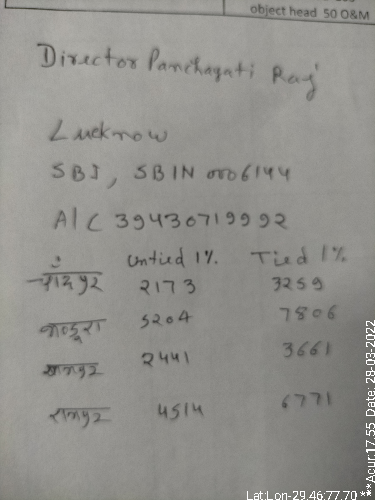 object head 50 O&M
Director Panchayati Raj
Lucknow
SBI, SBIN 0006144
A/C 39430719992
Untied 1% Tied 1%
चाँदपुर 2173 3259
5204 7806
2441 3661
रामपुर 4514 6771
Lat:Lon-29.46:77.70 ***Acur:17.55 Date: 28-03-2022